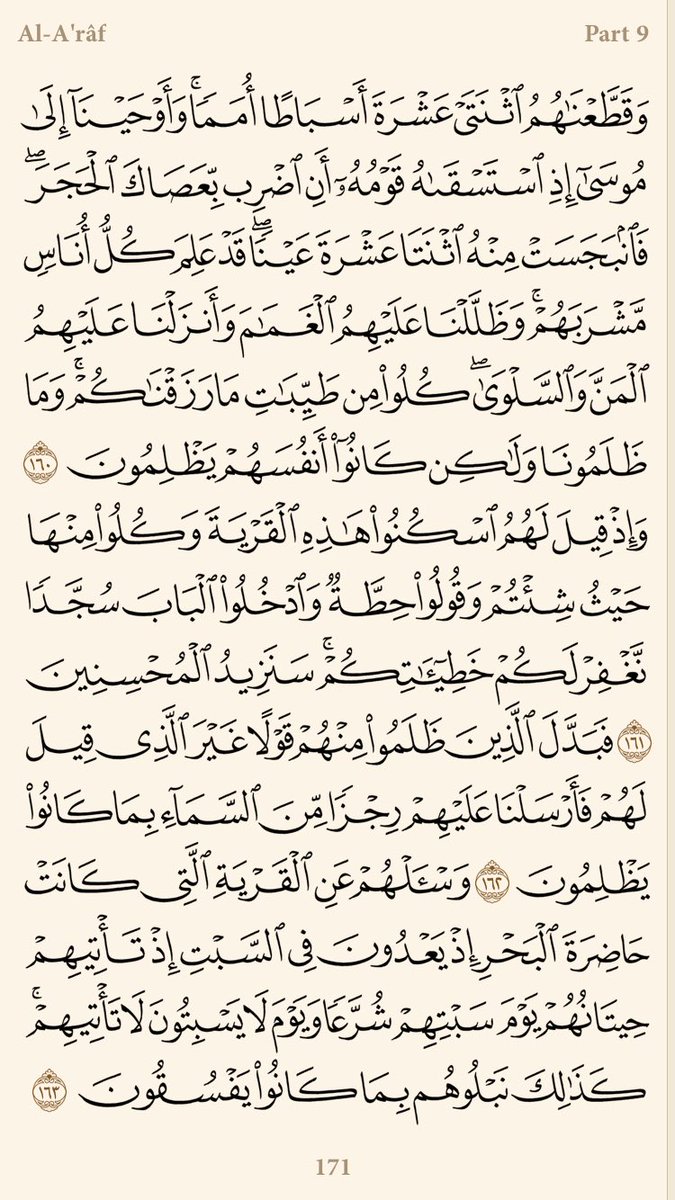 Al-A'râf Part 9
وَقَطَّعْنَٰهُمُ ٱثْنَتَىْ عَشْرَةَ أَسْبَاطًا أُمَمًا ۚ وَأَوْحَيْنَآ إِلَىٰ
مُوسَىٰٓ إِذِ ٱسْتَسْقَىٰهُ قَوْمُهُۥٓ أَنِ ٱضْرِب بِّعَصَاكَ ٱلْحَجَرَ ۖ
فَٱنۢبَجَسَتْ مِنْهُ ٱثْنَتَا عَشْرَةَ عَيْنًا ۖ قَدْ عَلِمَ كُلُّ أُنَاسٍ
مَّشْرَبَهُمْ ۚ وَظَلَّلْنَا عَلَيْهِمُ ٱلْغَمَٰمَ وَأَنزَلْنَا عَلَيْهِمُ
ٱلْمَنَّ وَٱلسَّلْوَىٰ ۖ كُلُوا۟ مِن طَيِّبَٰتِ مَا رَزَقْنَٰكُمْ ۚ وَمَا
ظَلَمُونَا وَلَٰكِن كَانُوٓا۟ أَنفُسَهُمْ يَظْلِمُونَ ١٦٠
وَإِذْ قِيلَ لَهُمُ ٱسْكُنُوا۟ هَٰذِهِ ٱلْقَرْيَةَ وَكُلُوا۟ مِنْهَا
حَيْثُ شِئْتُمْ وَقُولُوا۟ حِطَّةٌ وَٱدْخُلُوا۟ ٱلْبَابَ سُجَّدًا
نَّغْفِرْ لَكُمْ خَطِيٓـَٰٔتِكُمْ ۚ سَنَزِيدُ ٱلْمُحْسِنِينَ
١٦١ فَبَدَّلَ ٱلَّذِينَ ظَلَمُوا۟ مِنْهُمْ قَوْلًا غَيْرَ ٱلَّذِى قِيلَ
لَهُمْ فَأَرْسَلْنَا عَلَيْهِمْ رِجْزًا مِّنَ ٱلسَّمَآءِ بِمَا كَانُوا۟
يَظْلِمُونَ ١٦٢ وَسْـَٔلْهُمْ عَنِ ٱلْقَرْيَةِ ٱلَّتِى كَانَتْ
حَاضِرَةَ ٱلْبَحْرِ إِذْ يَعْدُونَ فِى ٱلسَّبْتِ إِذْ تَأْتِيهِمْ
حِيتَانُهُمْ يَوْمَ سَبْتِهِمْ شُرَّعًا وَيَوْمَ لَا يَسْبِتُونَ لَا تَأْتِيهِمْ ۚ
كَذَٰلِكَ نَبْلُوهُم بِمَا كَانُوا۟ يَفْسُقُونَ ١٦٣
171